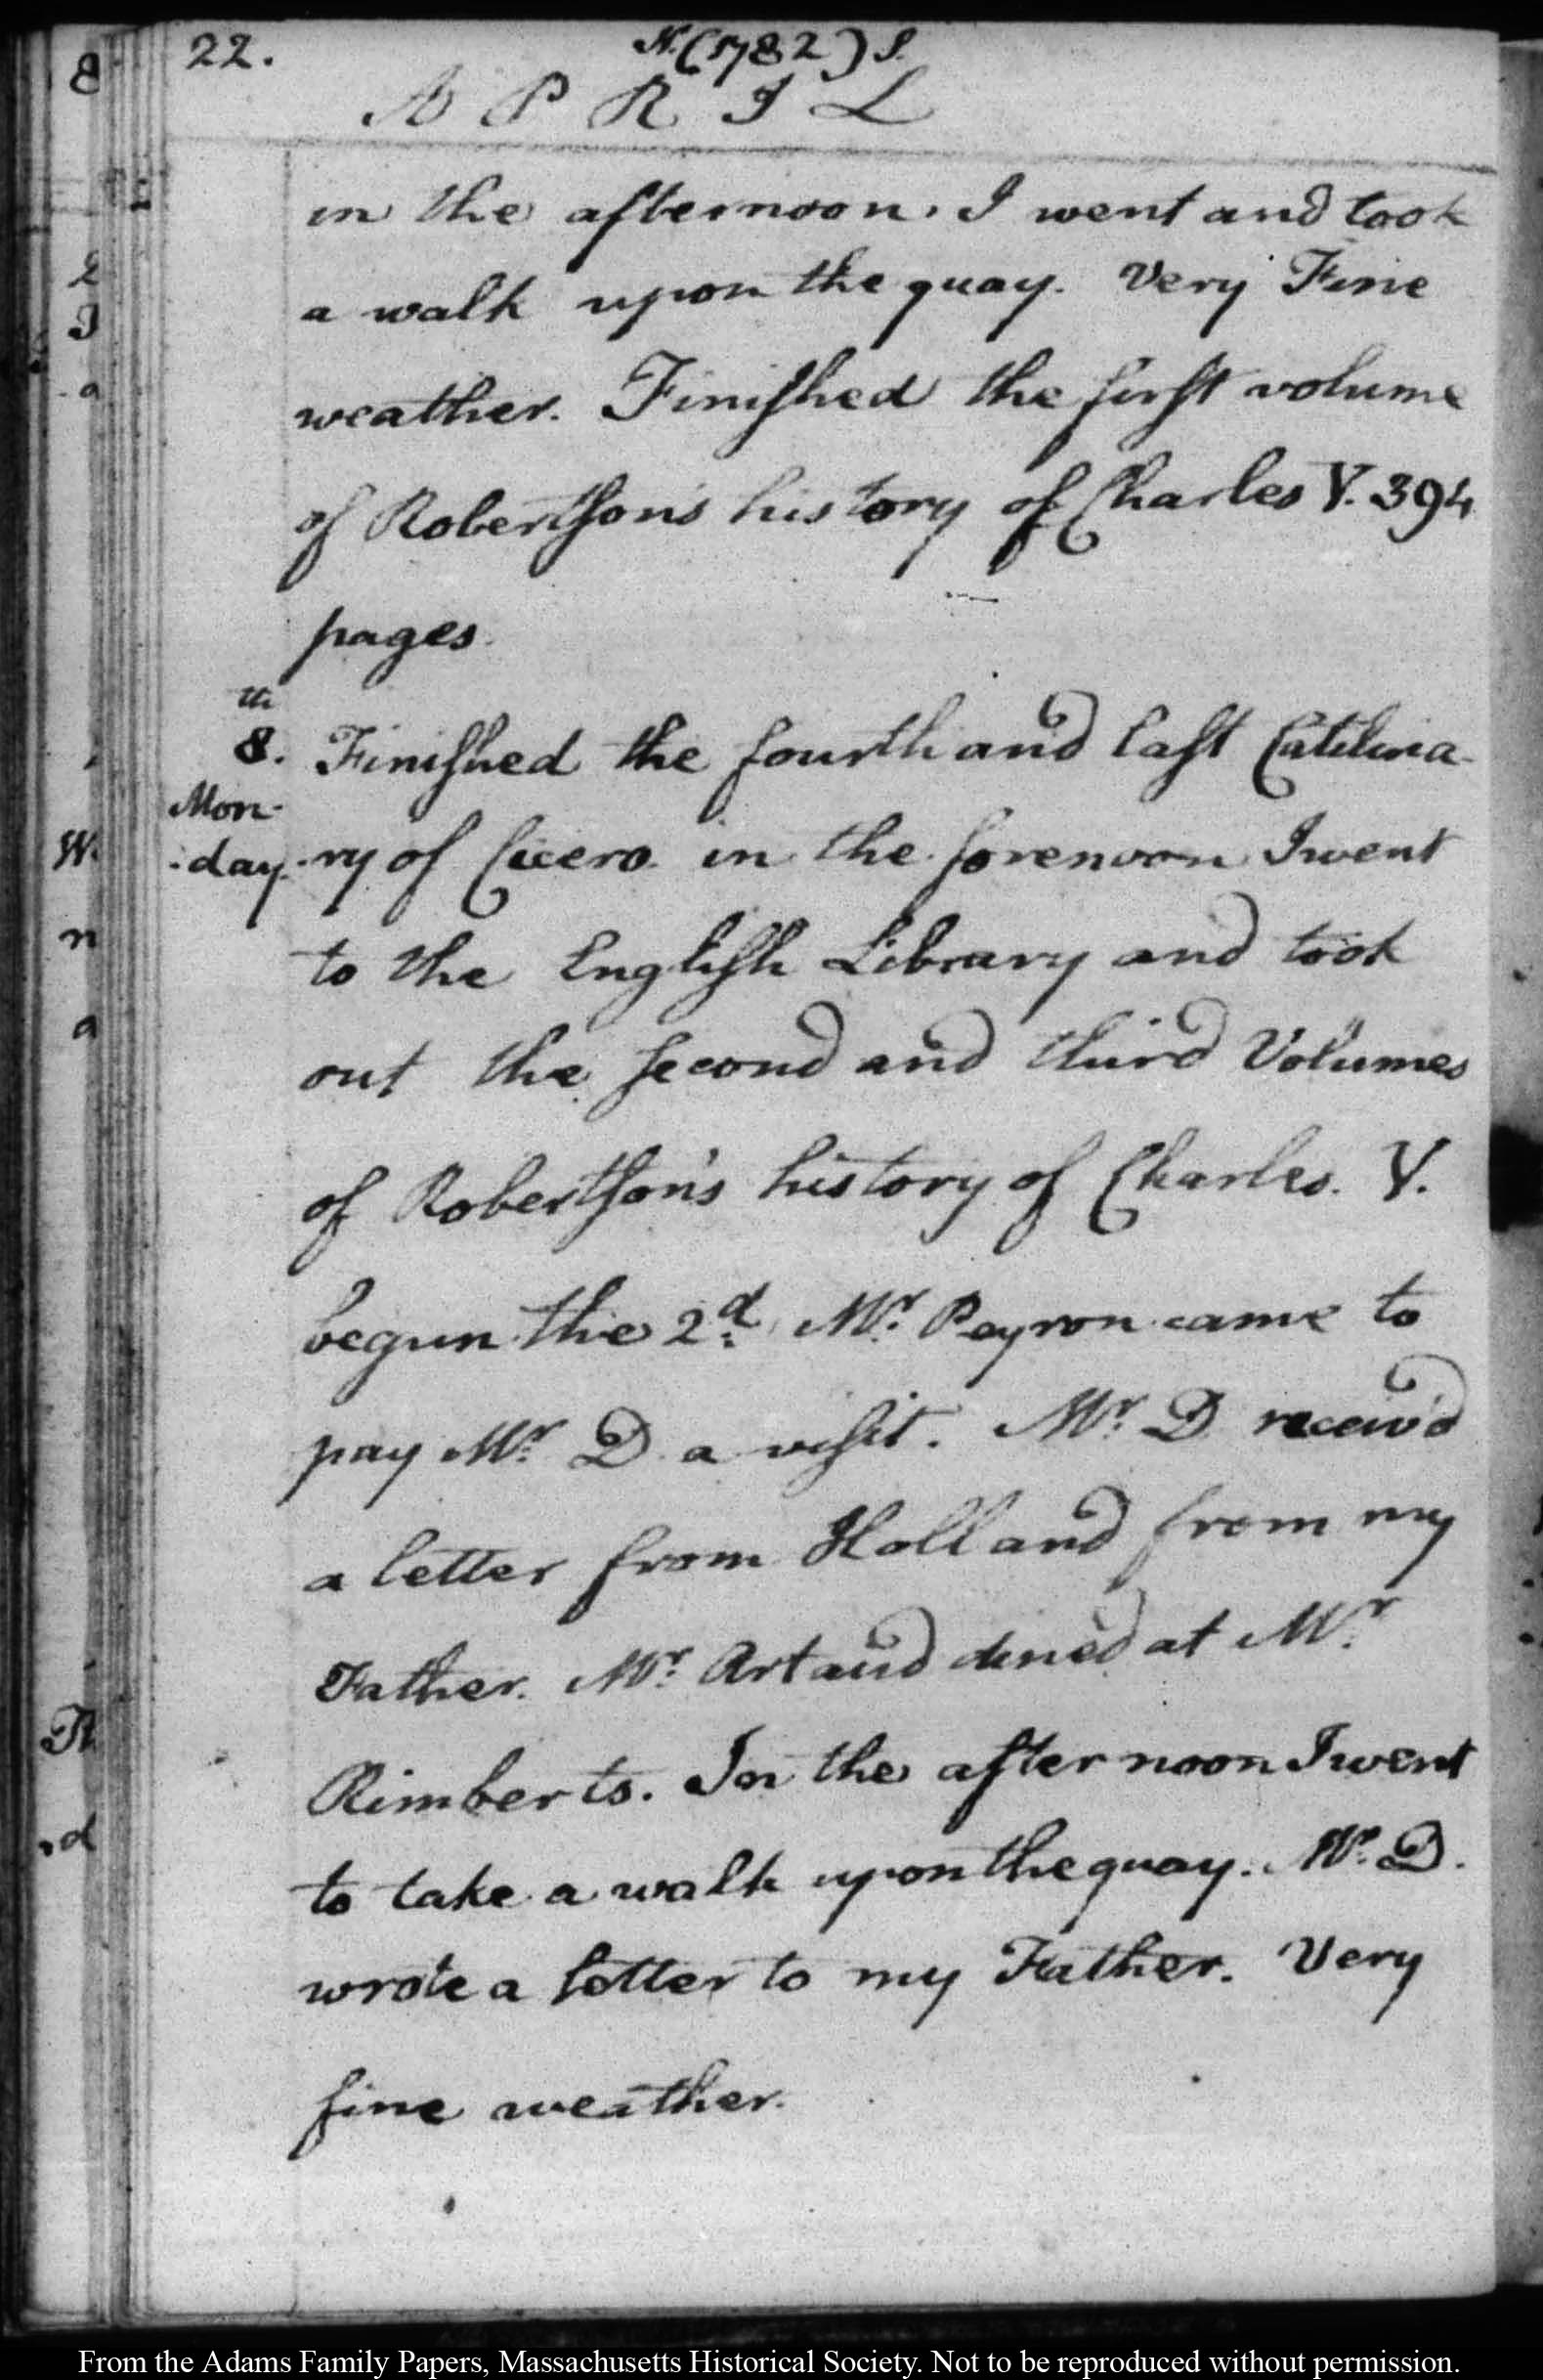 22. N. (1782) S.
A P R I L
in the afternoon. I went and took
a walk upon the quay. Very Fine
weather. Finiſhed the firſt volume
of Robertſon's history of Charles V. 394
pages.
th
8. Finiſhed the fourth and laſt Catilina-
Mon-
-day. -ry of Cicero. in the forenoon I went
to the Engliſh Library and took
out the ſecond and third Volumes
of Robertſon's history of Charles. V.
begun the 2d. Mr. Peyron came to
pay Mr. D. a viſit. Mr. D receiv'd
a letter from Holland from my
Father. Mr. Artaud dined at Mr.
Rimberts. In the afternoon I went
to take a walk upon the quay. Mr. D.
wrote a letter to my Father. Very
fine weather.
8
2
I
a
W.
n
a
d
From the Adams Family Papers, Massachusetts Historical Society. Not to be reproduced without permission.